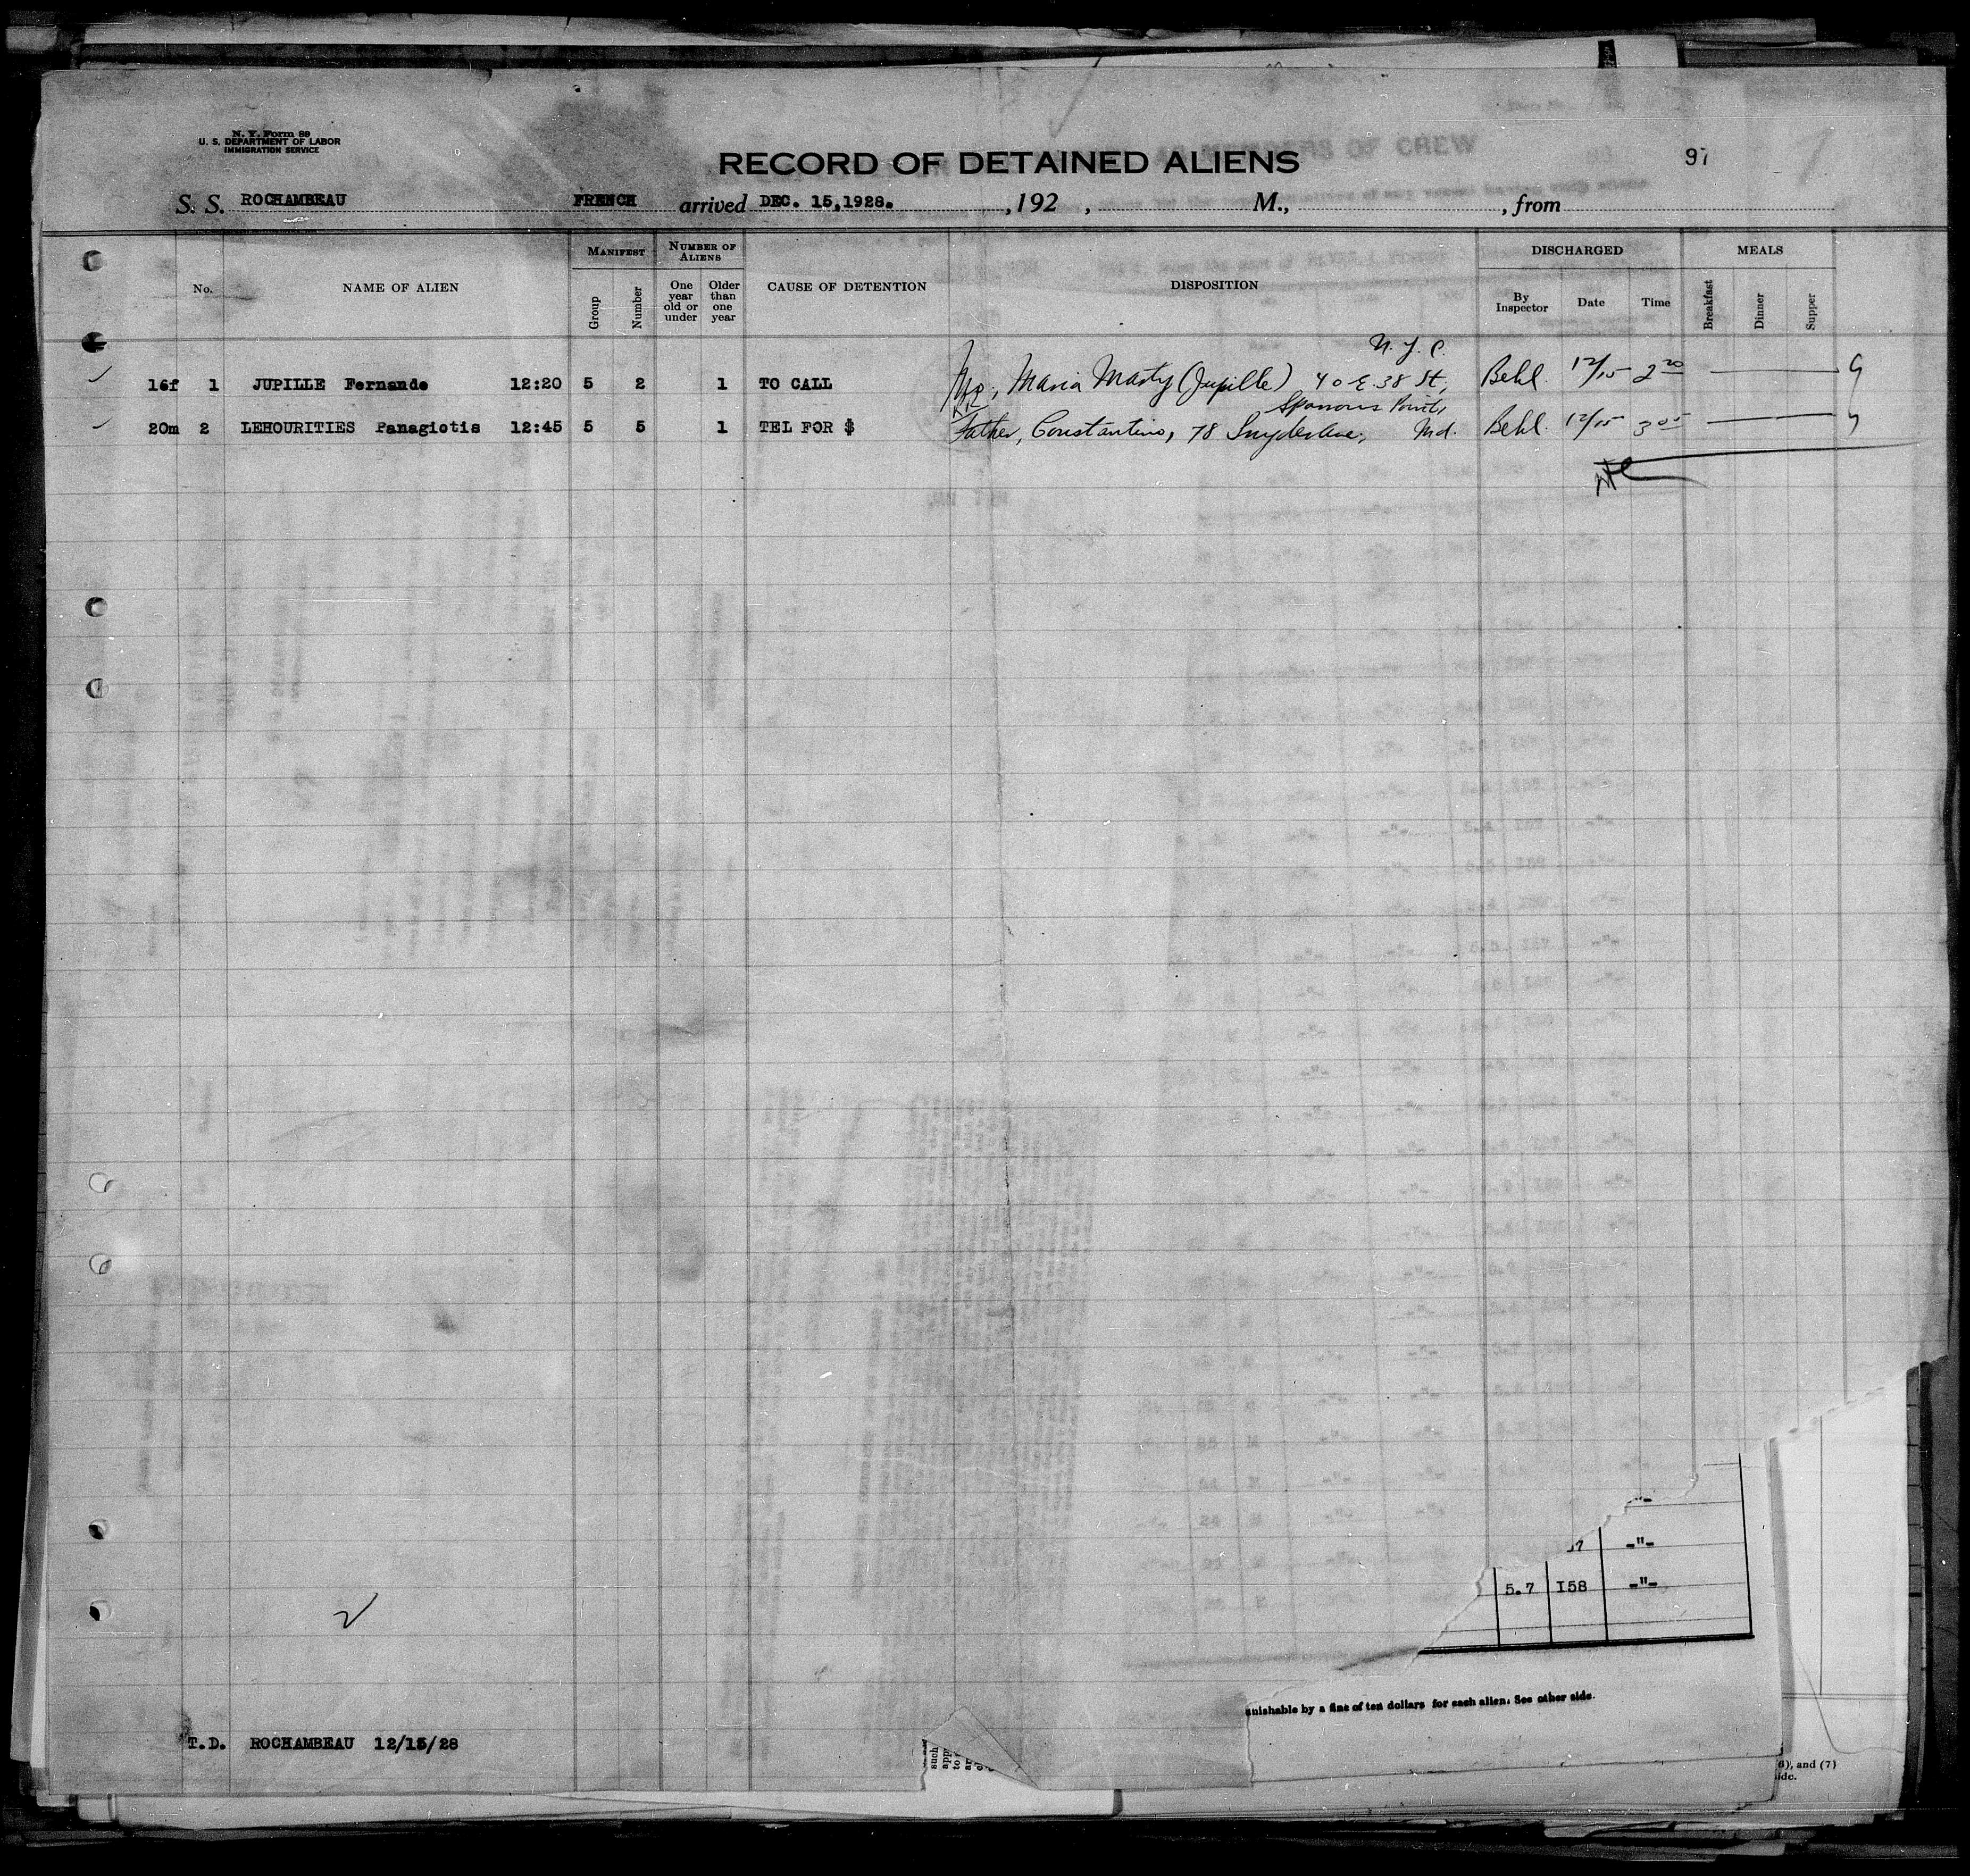 N. Y. Form 89
U. S. DEPARTMENT OF LABOR
IMMIGRATION SERVICE
RECORD OF DETAINED ALIENS
97
S. S. ROCHAMBEAU FRENCH arrived DEC. 15,1928. ,192 , M., , from
No. NAME OF ALIEN MANIFEST Group Number NUMBER OF ALIENS One year old or under Older than one year CAUSE OF DETENTION DISPOSITION DISCHARGED By Inspector Date Time MEALS Breakfast Dinner Supper
N. Y. C.
16f 1 JUPILLE Fernande 12:20 5 2 1 TO CALL Mo., Maria Marty (Jupille) 40 E. 38 St, Behl. 12/15 2 20
Sparrows Point,
20m 2 LEHOURITIES Panagiotis 12:45 5 5 1 TEL FOR $ Father, Constantino, 78 Snyder Ave, Md. Behl. 12/15 3 05
-"-
-"-
5.7 I58 -"-
2
unishable by a fine of ten dollars for each alien. See other side.
T.D. ROCHAMBEAU 12/15/28
6), and (7)
ide.